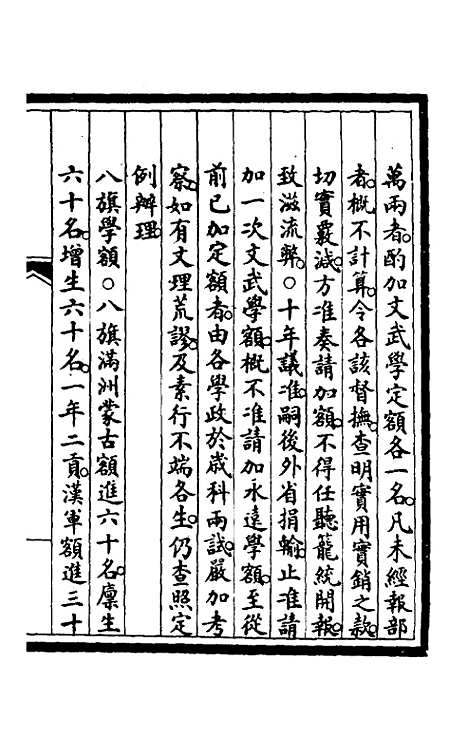 萬兩者。酌加文武學定額各一名。凡未經報部
者。概不計算。令各該督撫。查明實用實銷之款。
切實覈減。方准奏請加額。不得任聽籠統開報。
致滋流弊。○十年議准。嗣後外省捐輸。止准請
加一次文武學額。概不准請加永遠學額。至從
前已加定額者。由各學政於歲科兩試。嚴加考
察。如有文理荒謬。及素行不端各生。仍查照定
例辦理。
八旗學額○八旗滿洲蒙古額進六十名。廩生
六十名。增生六十名。一年二貢。漢軍額進三十